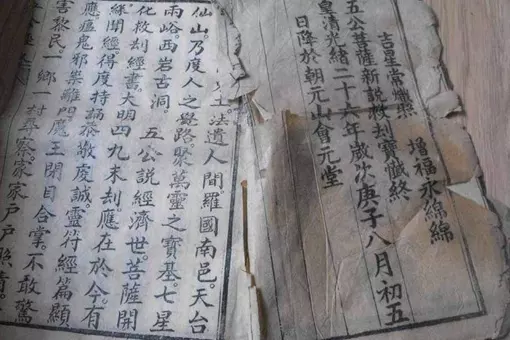 吉星常照 增福永綿綿
五公菩薩新說救刧寶懺終
皇清光緒二十六年歲次庚子八月初五
日降於朝元山會元堂
土法遺人間。羅國南邑。天台
仙山乃度人之覺路。聚萬靈之寶基。七星
雨峪。西岩古洞。 五公說經濟世。菩薩開
化救刧經書。大明四九末刧。應在於今。有
緣聞經。得度持誦。恭敬虔誠。靈符經篇顯
應。瘟鬼邪祟離門。魔王閉目合掌。不敢驚
害黎民。一鄉一村 察。家家戶戶照